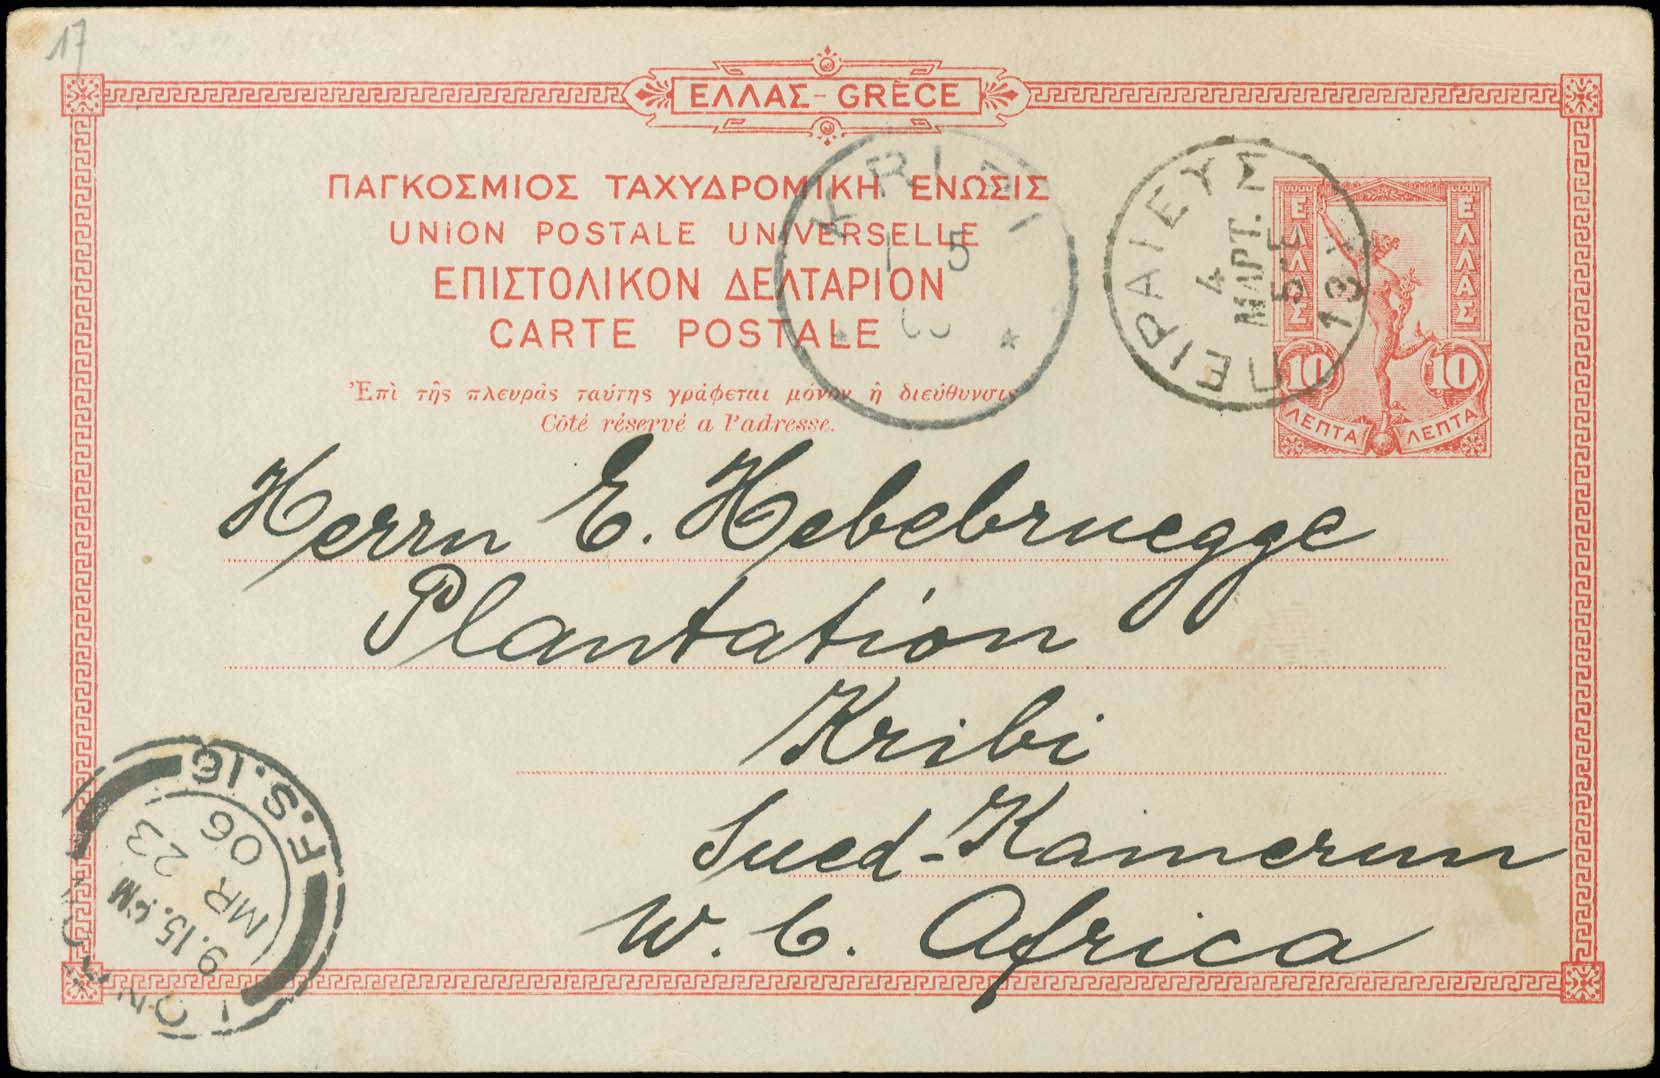 17
ΕΛΛΑΣ - GRÈCE
ΠΑΓΚΟΣΜΙΟΣ ΤΑΧΥΔΡΟΜΙΚΗ ΕΝΩΣΙΣ
UNION POSTALE UNIVERSELLE
ΕΠΙΣΤΟΛΙΚΟΝ ΔΕΛΤΑΡΙΟΝ
CARTE POSTALE
Ἐπὶ τῆς πλευρᾶς ταύτης γράφεται μόνον ἡ διεύθυνσις
Côté réservé a l'adresse.
KRIBI
5
* *
ΠΕΙΡΑΙΕΥΣ
4
ΜΑΡΤ. 
5-Ε
ΕΛΛΑΣ ΕΛΛΑΣ
10 10
ΛΕΠΤΑ ΛΕΠΤΑ
Herrn E. Hebebruegge
Plantation
Kribi
Sued-Kamerun
W. C. Africa
LONDON
F.S. 16
9.15. PM
MR 23
06